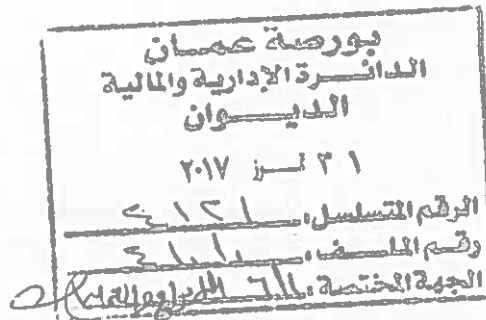 بورصة عمان
الدائرة الإدارية والمالية
الديوان
٣١ تموز ٢٠١٧
الرقم المتسلسل: ٤١٢١
رقم الملف:
الجهة المختصة: